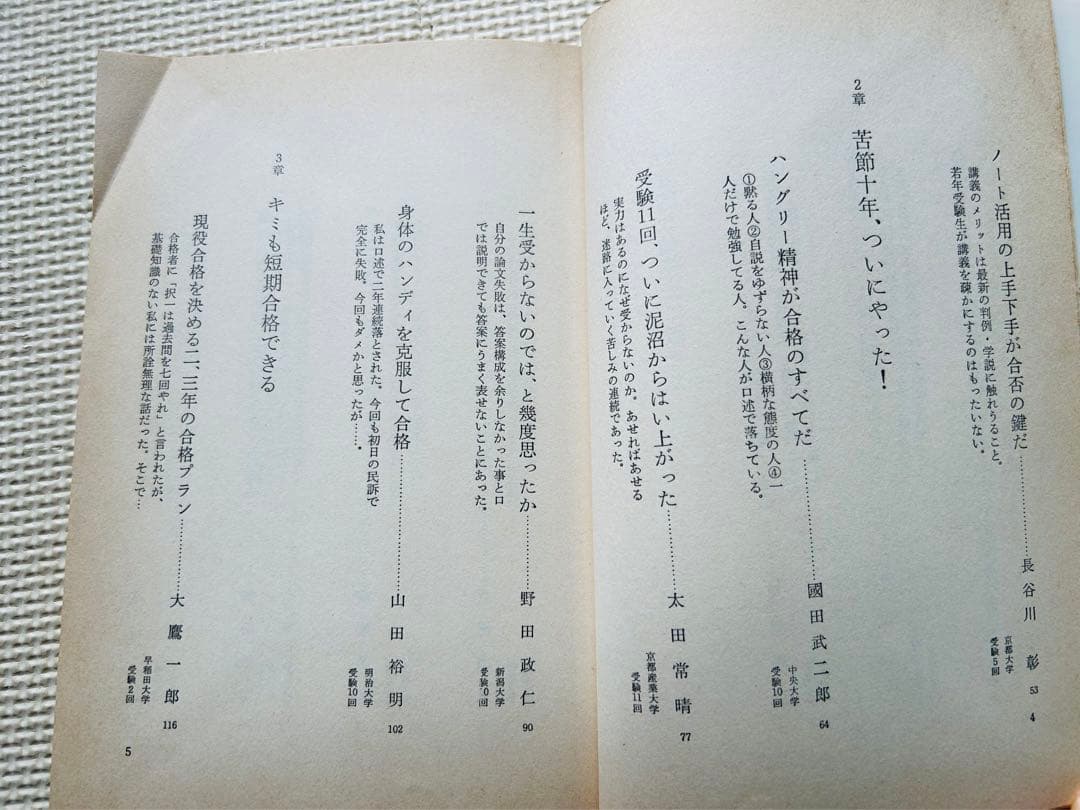 ノート活用の上手下手が合否の鍵だ…………長谷川 彰 53
講義のメリットは最新の判例・学説に触れうること。
若年受験生が講義を疎かにするのはもったいない。
京都大学
受験5回
4
2章 苦節十年、ついにやった！
ハングリー精神が合格のすべてだ…………國田武二郎 64
①黙る人②自説をゆずらない人③横柄な態度の人④一
人だけで勉強してる人。こんな人が口述で落ちている。
中央大学
受験10回
受験11回、ついに泥沼からはい上がった…………太田常晴 77
実力はあるのになぜ受からないのか。あせればあせる
ほど、迷路に入っていく苦しみの連続であった。
京都産業大学
受験11回
一生受からないのでは、と幾度思ったか…………野田政仁 90
自分の論文失敗は、答案構成を余りしなかった事と口
では説明できても答案にうまく表せないことにあった。
新潟大学
受験10回
身体のハンディを克服して合格…………山田裕明 102
私は口述で二年連続落とされた。今回も初日の民訴で
完全に失敗。今回もダメかと思ったが……。
明治大学
受験10回
3章 キミも短期合格できる
現役合格を決める二、三年の合格プラン…………大鷹一郎 116
合格者に「択一は過去問を七回やれ」と言われたが、
基礎知識のない私には所詮無理な話だった。そこで…
早稲田大学
受験2回
5